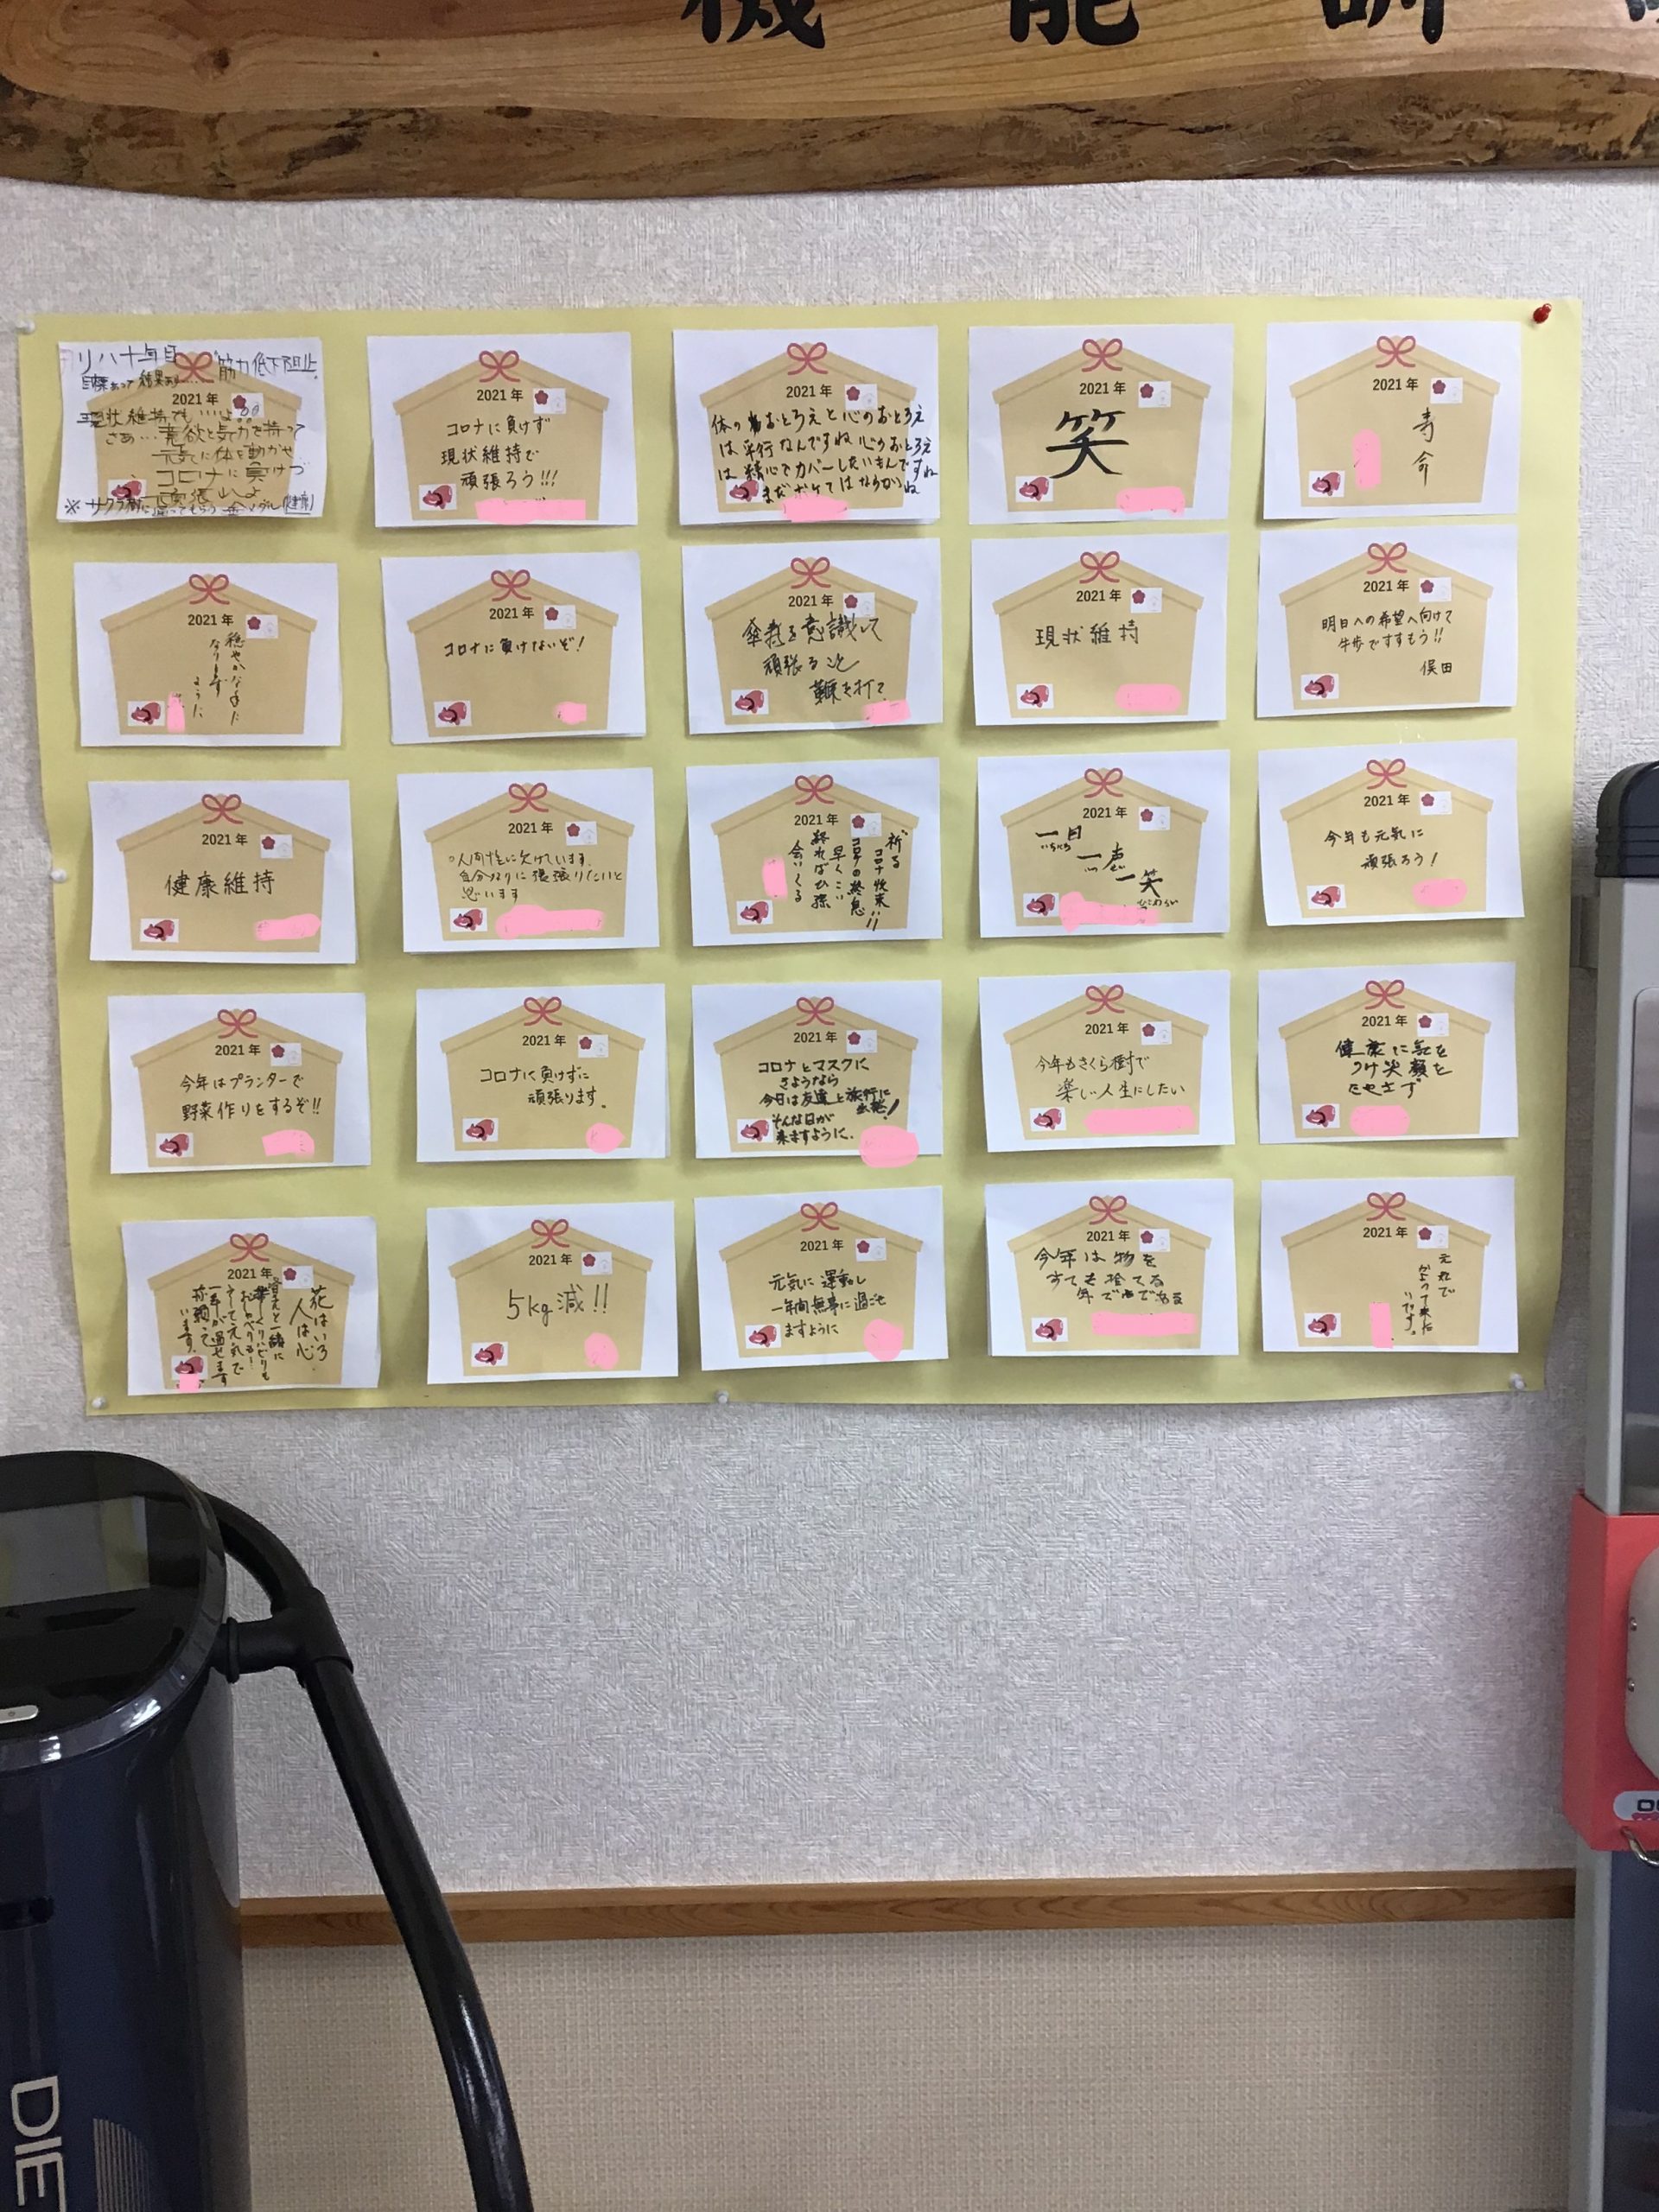 機能訓
リハ十年目
筋力低下阻止
目標あって結果あり……
2021年
現状維持でも…よ
さあ…意欲と気力を持って
元気に体を動かせ
コロナに負けづ
頑張山へよ
2021年
コロナに負けず
現状維持で
頑張ろう!!!
2021年
体のおとろえと心のおとろえ
は平行なんですね心のおとろえ
は精心でカバーしたいもんですね
まだボケてはならかいね
2021年
笑
2021年
寿命
2021年
穏やかな年に
なります
ように
2021年
コロナに負けないぞ!
2021年
傘寿を意識して
頑張ること
鞭を打て
2021年
現状維持
2021年
明日への希望へ向けて
牛歩ですすもう!!
俣田
2021年
健康維持
2021年
人間性に欠けています.
自分なりに張張りたいと
思います
2021年
祈る
コロナ収束!!
コロナの終息
早くこい
終ればひ孫
会いくる
2021年
一日
いちにち
一恵
一笑
2021年
今年も元気に
頑張ろう!
2021年
今年はプランターで
野菜作りをするぞ!!
2021年
コロナに負けずに
頑張ります。
2021年
コロナとマスクに
さようなら
今日は友達と旅行に
出発!
そんな日が
来ますように.
2021年
今年もさくら樹で
楽しい人生にしたい
2021年
健康に気を
つけ笑顔を
たやさず
2021年
花はいろ
人は心
皆さんと一緒に
楽しくリハビリも
おしゃべりも!
そして元気で
一年が過せます
祈願って
います.
2021年
5kg減!!
2021年
元気に運動し
一年間無事に過ごせ
ますように
2021年
今年は物を
すてる捨てる
年である
2021年
元気で
かよって来た
いです。
DIE